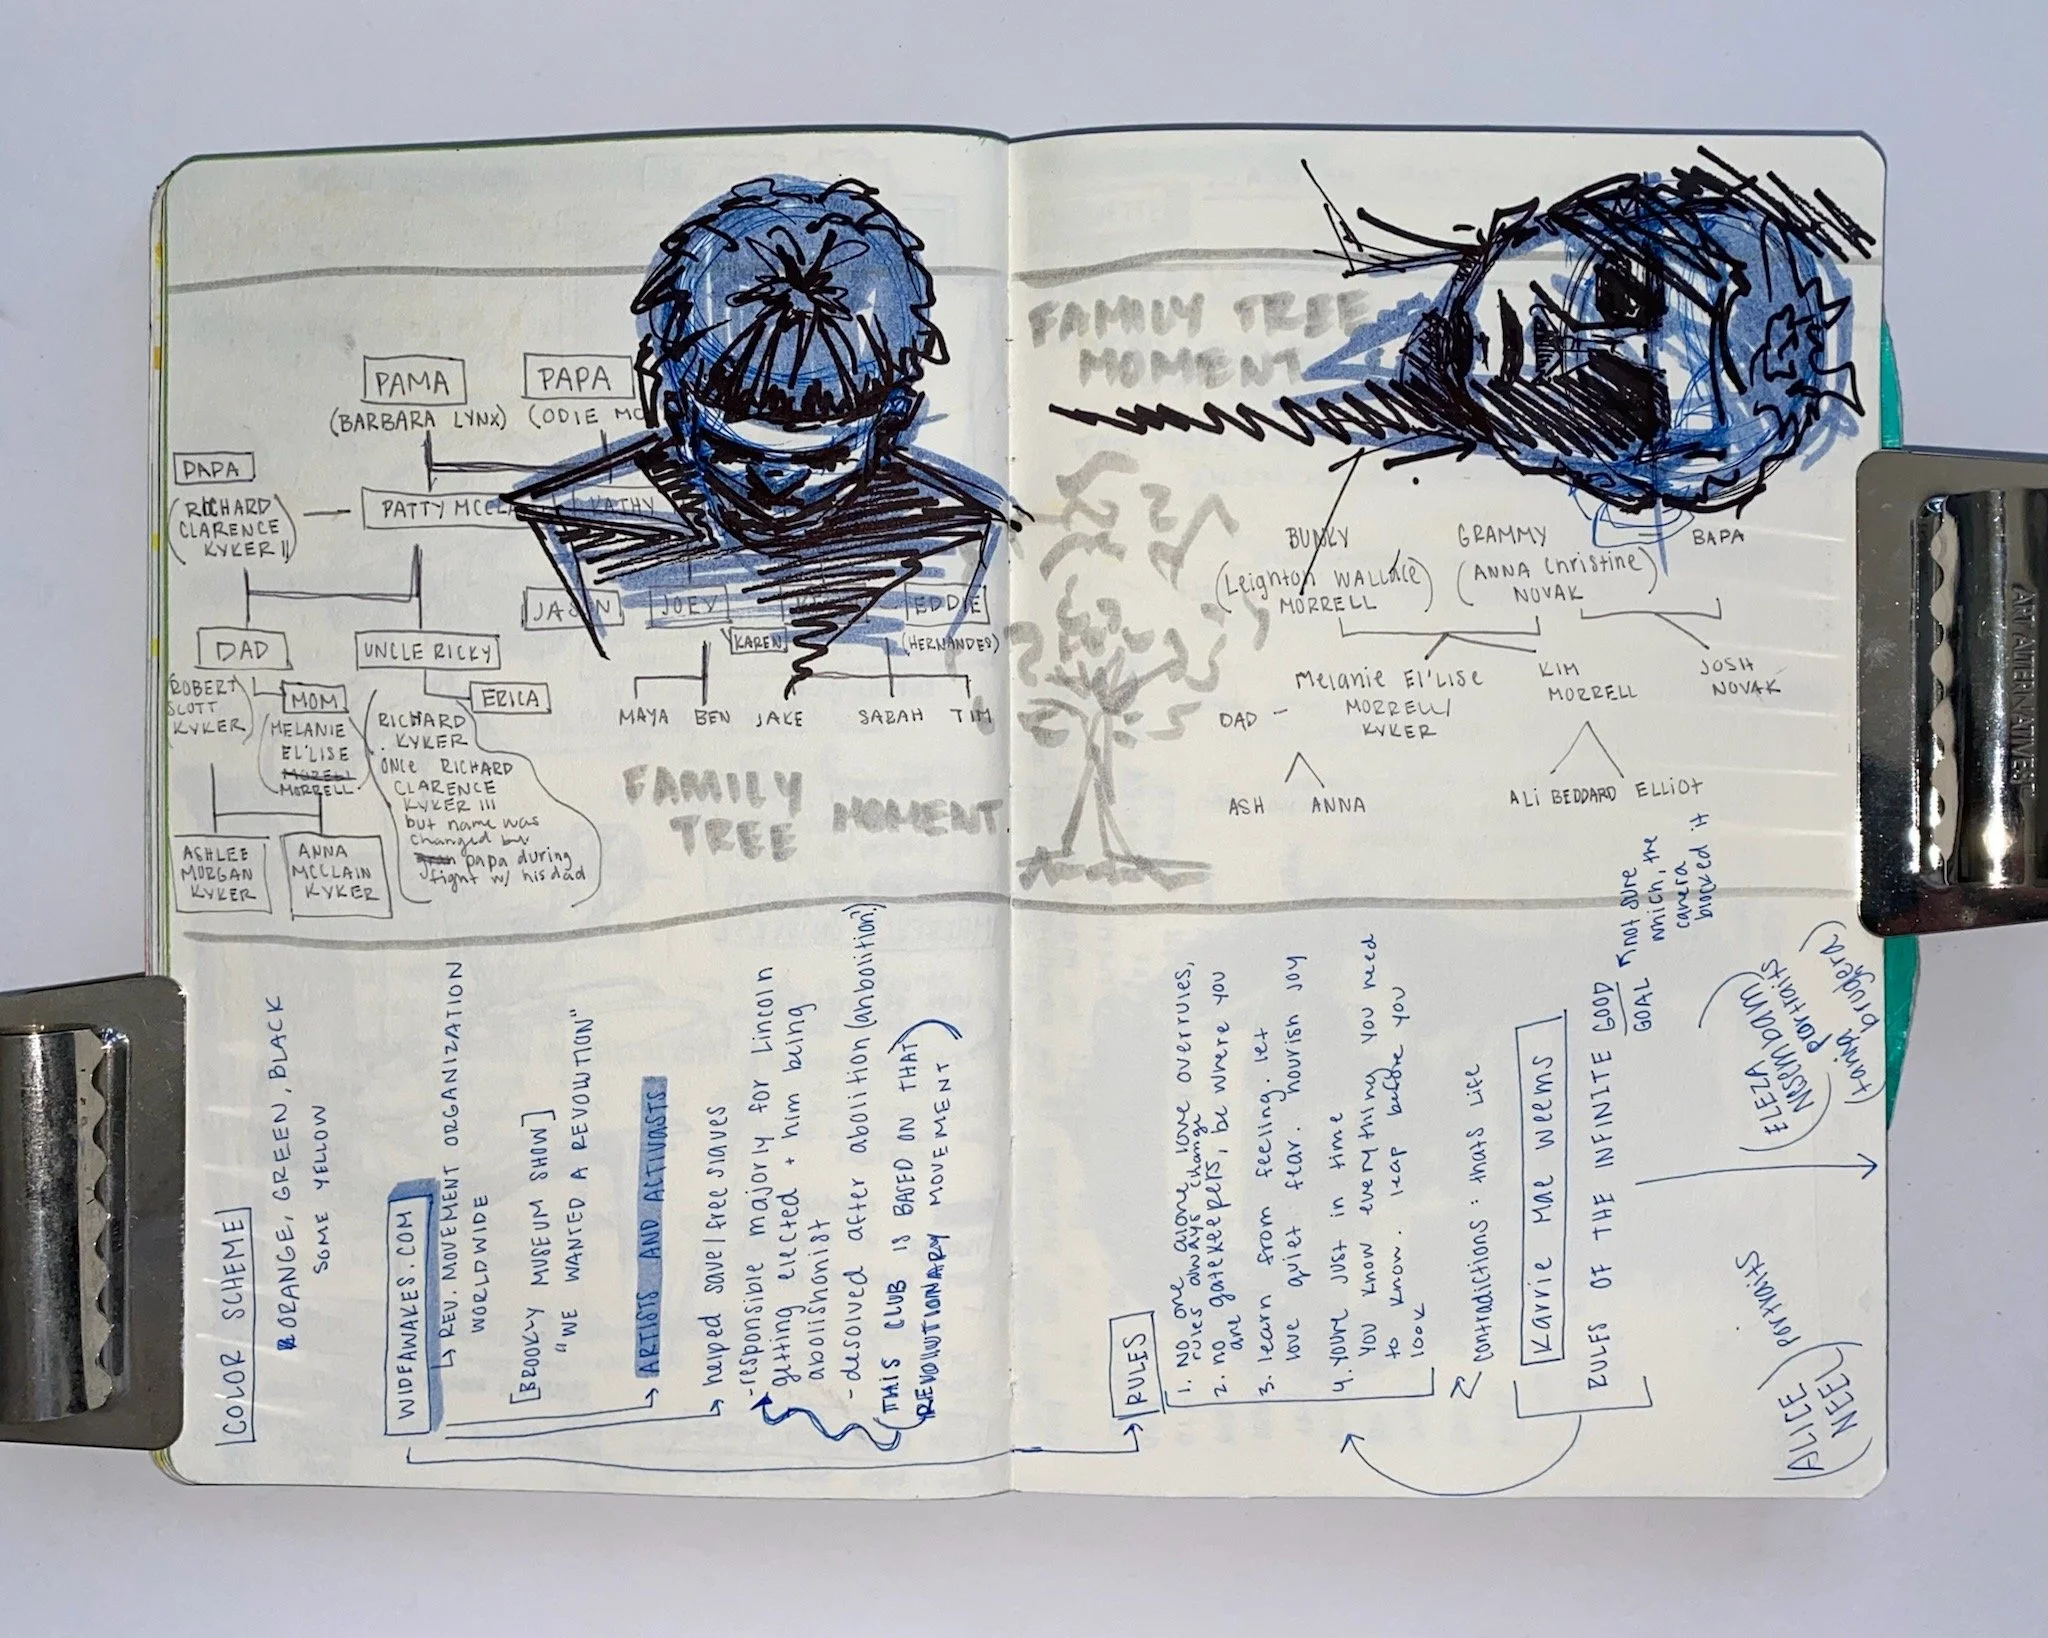 PAMA
(BARBARA LYNX)
PAPA
(ODIE MC
PAPA
(RICHARD
CLARENCE
KYKER II)
PATTY MCCLA
KATHY
DAD
(ROBERT
SCOTT
KYKER)
MOM
(MELANIE
EL'LISE
MORRELL)
UNCLE RICKY
ERICA
RICHARD
KYKER
ONCE RICHARD
CLARENCE
KYKER III
but name was
changed by
papa during
fight w/ his dad
ASHLEE
MORGAN
KYKER
ANNA
MCCLAIN
KYKER
JASON
JOEY
KAREN
EDDIE
(HERNANDES)
MAYA BEN JAKE SARAH TIM
FAMILY
TREE MOMENT
FAMILY TREE
MOMENT
BUNKY
(Leighton WALLACE)
MORRELL
GRAMMY
(ANNA Christine)
NOVAK
BAPA
DAD - Melanie El'lise
MORRELL/
KYKER
KIM
MORRELL
JOSH
NOVAK
ASH ANNA
ALI BEDDARD ELLIOT
COLOR SCHEME
ORANGE, GREEN, BLACK
SOME YELLOW
WIDEAWAKES.COM
REV. MOVEMENT ORGANIZATION
WORLDWIDE
[BROOKLY MUSEUM SHOW]
"WE WANTED A REVOLUTION"
ARTISTS AND ACTIVASTS
helped save/free slaves
-responsible majorly for Lincoln
getting elected + him being
abolishonist
-desolved after abolition (anbolition?)
(THIS CLUB IS BASED ON THAT
REVOLUTIONARY MOVEMENT)
RULES
1. NO one alone, love overrules,
rules always change
2. no gatekeepers, be where you
are
3. learn from feeling. let
love quiet fear. nourish joy
4. you're just in time
you know everything you need
to know. leap before you
look
contradictions: thats life
Karrie Mae Weems
RULES OF THE INFINITE GOOD
GOAL
not sure
which, the
camera
blocked it
(ALICE
NEEL) portraits
portraits